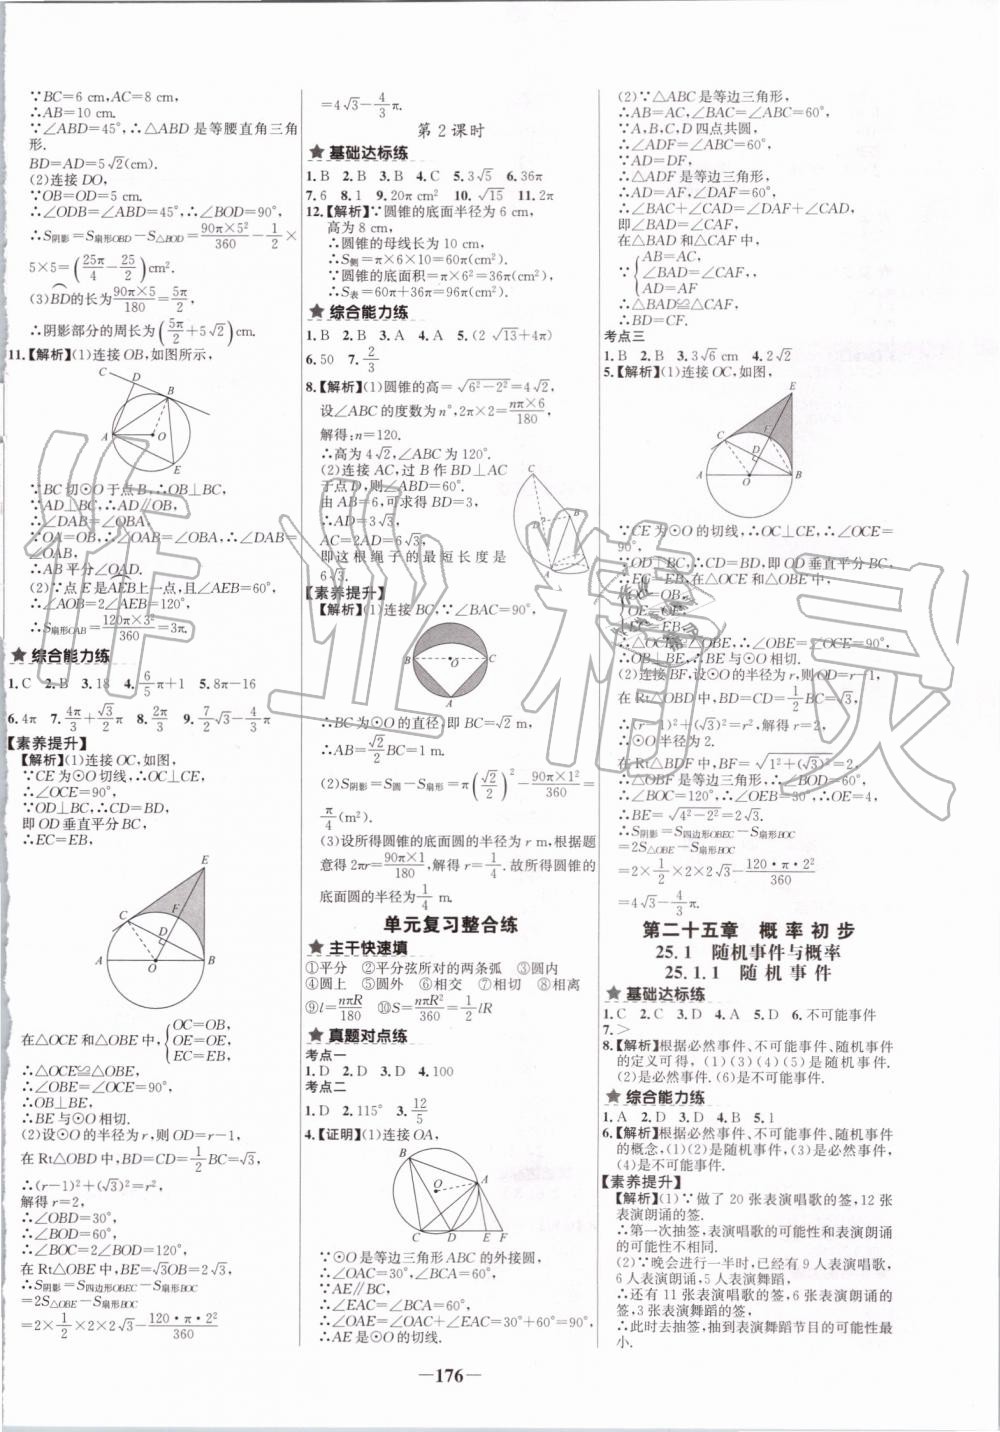 ∵BC=6 cm,AC=8 cm,
∴AB=10 cm.
∵∠ABD=45°,∴△ABD 是等腰直角三角形.
BD=AD=5√2(cm)
(2)连接 DO,
∵OB=OD=5 cm.
∴∠ODB=∠ABD=45°,∴∠BOD=90°,
∴S阴影=S扇形OBD−S△BOD=90π×5²/360−1/2×
5×5=(25π/4−25/2)cm².
(3)BD的长为90π×5/180=5π/2,
∴阴影部分的周长为(5π/2+5√2)cm.
11.【解析】(1)连接 OB,如图所示,
C D B A O E
∵BC 切⊙O 于点 B,∴OB⊥BC,
∵AD⊥BC,∴AD∥OB,
∴∠DAB=∠OBA.
∵OA=OB,∴∠OAB=∠OBA,∴∠DAB=
∠OAB,
∴AB 平分∠OAD.
(2)∵点 E 是AEB上一点,且∠AEB=60°,
∴∠AOB=2∠AEB=120°,
∴S扇形OAB=120π×3²/360=3π.
★综合能力练
1.C 2.B 3.18 4.6/5π+1 5.8π−16
6.4π 7.4π/3+√3/2π 8.2π/3 9.7/2√3−4/3π
【素养提升】
【解析】(1)连接 OC,如图,
∵CE 为⊙O 切线,∴OC⊥CE,
∴∠OCE=90°,
∵OD⊥BC,∴CD=BD,
即 OD 垂直平分 BC,
∴EC=EB,
E C F D A O B
在△OCE 和△OBE 中,{OC=OB,
OE=OE,
EC=EB,
∴△OCE≌△OBE,
∴∠OBE=∠OCE=90°,
∴OB⊥BE,
∴BE 与⊙O 相切.
(2)设⊙O 的半径为 r,则 OD=r−1,
在 Rt△OBD 中,BD=CD=1/2BC=√3,
∴(r−1)²+(√3)²=r²,
解得 r=2,
∴∠OBD=30°,
∴∠BOD=60°,
∴∠BOC=2∠BOD=120°,
在 Rt△OBE 中,BE=√3OB=2√3,
∴S阴影=S四边形OBEC−S扇形BOC
=2S△OBE−S扇形BOC
=2×1/2×2×2√3−120·π·2²/360
=4√3−4/3π.
第 2 课时
★基础达标练
1.B 2.B 3.B 4.C 5.3√5 6.36π
7.6 8.1 9.20π cm² 10.√15 11.2π
12.【解析】∵圆锥的底面半径为 6 cm,
高为 8 cm,
∴圆锥的母线长为 10 cm,
∴S侧=π×6×10=60π(cm²),
∵圆锥的底面积=π×6²=36π(cm²),
∴S表=60π+36π=96π(cm²).
★综合能力练
1.B 2.B 3.A 4.A 5.(2√13+4π)
6.50 7.2/3
8.【解析】(1)圆锥的高=√6²−2²=4√2,
设∠ABC 的度数为 n°,2π×2=nπ×6/180,
解得:n=120.
∴高为 4√2,∠ABC 为 120°.
(2)连接 AC,过 B 作 BD⊥AC
于点 D,则∠ABD=60°.
由 AB=6,可求得 BD=3,
∴AD=3√3,
AC=2AD=6√3,
即这根绳子的最短长度是
6√3.
C B D A
【素养提升】
【解析】(1)连接 BC,∵∠BAC=90°,
B O C A
∴BC 为⊙O 的直径,即 BC=√2 m,
∴AB=√2/2BC=1 m.
(2)S阴影=S圆−S扇形=π(√2/2)²−90π×1²/360=
π/4(m²).
(3)设所得圆锥的底面圆的半径为 r m,根据题
意得 2πr=90π×1/180,解得 r=1/4. 故所得圆锥的
底面圆的半径为1/4 m.
单元复习整合练
★主干快速填
①平分 ②平分弦所对的两条弧 ③圆内
④圆上 ⑤圆外 ⑥相交 ⑦相切 ⑧相离
⑨l=nπR/180 ⑩S=nπR²/360=1/2lR
★真题对点练
考点一
1.D 2.D 3.D 4.100
考点二
1.D 2.115° 3.12/5
4.【证明】(1)连接 OA,
B O A C D E F
∵⊙O 是等边三角形 ABC 的外接圆,
∴∠OAC=30°,∠BCA=60°,
∵AE∥BC,
∴∠EAC=∠BCA=60°,
∴∠OAE=∠OAC+∠EAC=30°+60°=90°,
∴AE 是⊙O 的切线.
(2)∵△ABC 是等边三角形,
∴AB=AC,∠BAC=∠BCA=60°,
∵A,B,C,D 四点共圆,
∴∠ADF=∠ABC=60°,
∵AD=DF,
∴△ADF 是等边三角形,
∴∠BAC+∠CAD=∠DAF+∠CAD,
即∠BAD=∠CAF,
在△BAD 和△CAF 中,
∵{AB=AC,
∠BAD=∠CAF,,
AD=AF
∴△BAD≌△CAF,
∴BD=CF.
考点三
1.B 2.B 3.3√6 cm 4.2√2
5.【解析】(1)连接 OC,如图,
E C F D A O B
∵CE 为⊙O 的切线,∴OC⊥CE,∴∠OCE=
90°,
∵OD⊥BC,∴CD=BD,即 OD 垂直平分 BC,
∴EC=EB,在△OCE 和△OBE 中
{OC=OB,
OE=OE,
EC=EB
∴△OCE≌△OBE,∴∠OBE=∠OCE=90°,
∴OB⊥BE,∴BE 与⊙O 相切.
(2)连接 BF,设⊙O 的半径为 r,则 OD=r−1,
在 Rt△OBD 中,BD=CD=1/2BC=√3,
∴(r−1)²+(√3)²=r²,解得 r=2,
∴⊙O 半径为 2.
在 Rt△BDF 中,BF=√1²+(√3)²=2,
∴△OBF 是等边三角形,∴∠OBF=60°,
∴∠BOC=120°,∴∠OEB=30°,∴OE=4,
∴BE=√4²−2²=2√3,
∴S阴影=S四边形OBEC−S扇形BOC
=2S△OBE−S扇形BOC
=2×1/2×2×2√3−120·π·2²/360
=4√3−4/3π.
第二十五章 概率初步
25.1 随机事件与概率
25.1.1 随机事件
★基础达标练
1.C 2.C 3.D 4.A 5.D 6.不可能事件
7.>
8.【解析】根据必然事件、不可能事件、随机事件
的定义可得,(1)(3)(4)(5)是随机事件.
(2)是必然事件.(6)是不可能事件.
★综合能力练
1.A 2.D 3.D 4.B 5.1
6.【解析】根据必然事件、不可能事件、随机事件
的概念,(1)(2)是随机事件,(3)是必然事件,
(4)是不可能事件.
【素养提升】
【解析】(1)∵做了 20 张表演唱歌的签,12 张
表演朗诵的签.
∴第一次抽签,表演唱歌的可能性和表演朗诵
的可能性不相同.
(2)∵晚会进行一半时,已经有 9 人表演唱歌,
6 人表演朗诵,5 人表演舞蹈,
∴还有 11 张表演唱歌的签,6 张表演朗诵的
签,3 张表演舞蹈的签.
∴此时去抽签,抽到表演舞蹈节目的可能性最
小.
—176—
作业精灵